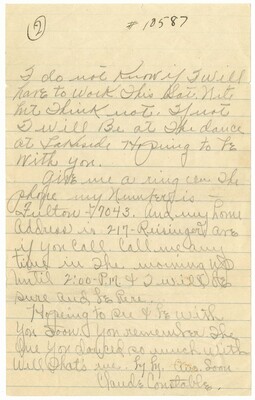 ②
# 10587
I do not Know if I will
have to Work This Sat. Nite
but Think not. If not
I will Be at The dance
at Lakeside Hoping to be
With you.
Give me a ring on The
phone my Number is -
Fulton 79043. And my home
Address is 217- Reisinger Ave
if you Call Call me any
time in The morning
Until 2:00 P.M. & I will be
sure and be here.
Hoping to see & be with
you Soon. you remember The
One you danced so much With
Well That's me. by by. Ans. Soon
Claude Constable.